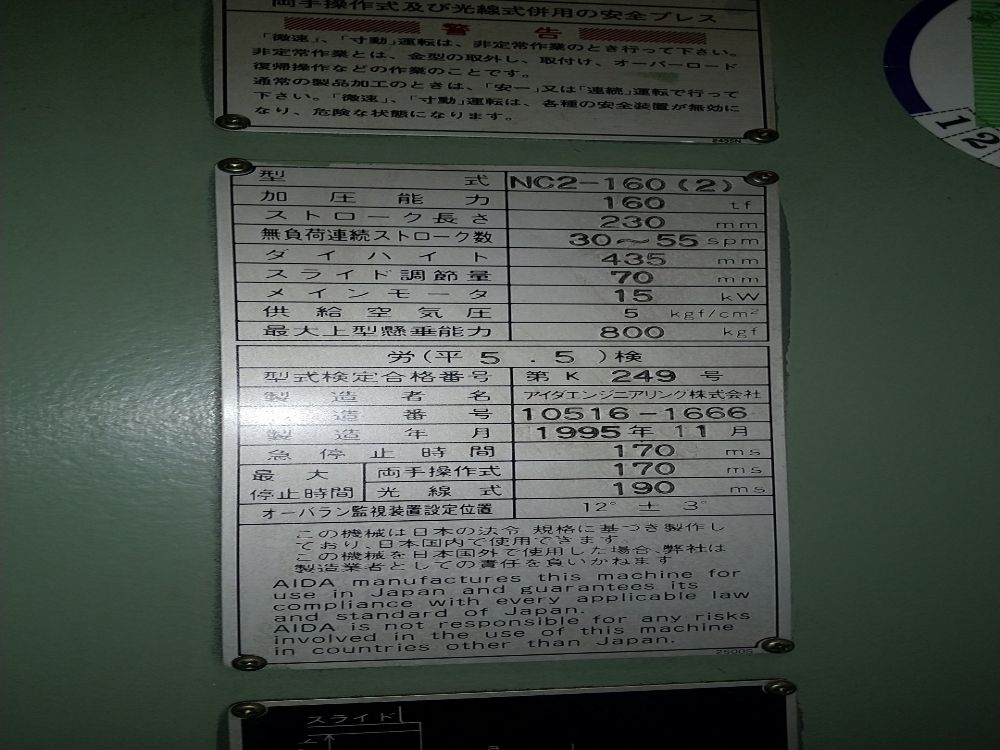 両手操作式及び光線式併用の安全プレス
警告
「微速」、「寸動」運転は、非定常作業のとき行って下さい。
非定常作業とは、金型の取外し、取付け、オーバーロード
復帰操作などの作業のことです。
通常の製品加工のときは、「安一」又は「連続」運転で行って
下さい。「微速」、「寸動」運転は、各種の安全装置が無効に
なり、危険な状態になります。
12
型式 NC2-160(2)
加圧能力 160 tf
ストローク長さ 230 mm
無負荷連続ストローク数 30～55 spm
ダイハイト 435 mm
スライド調節量 70 mm
メインモータ 15 kW
供給空気圧 5 kgf/cm²
最大上型懸垂能力 800 kgf
労(平5.5)検
型式検定合格番号 第K 249 号
製造者名 アイダエンジニアリング株式会社
造番号 10516-1666
製造年月 1995年11月
急停止時間 170 ms
最大停止時間 両手操作式 170 ms
光線式 190 ms
オーバラン監視装置設定位置 12° ± 3°
この機械は日本の法令、規格に基づき製作し
ており、日本国内で使用できます。
この機械を日本国外で使用した場合、弊社は
製造業者としての責任を負いかねます
AIDA manufactures this machine for
use in Japan and guarantees its
compliance with every applicable law
and standard of Japan.
AIDA is not responsible for any risks
involved in the use of this machine
in countries other than Japan.
スライド